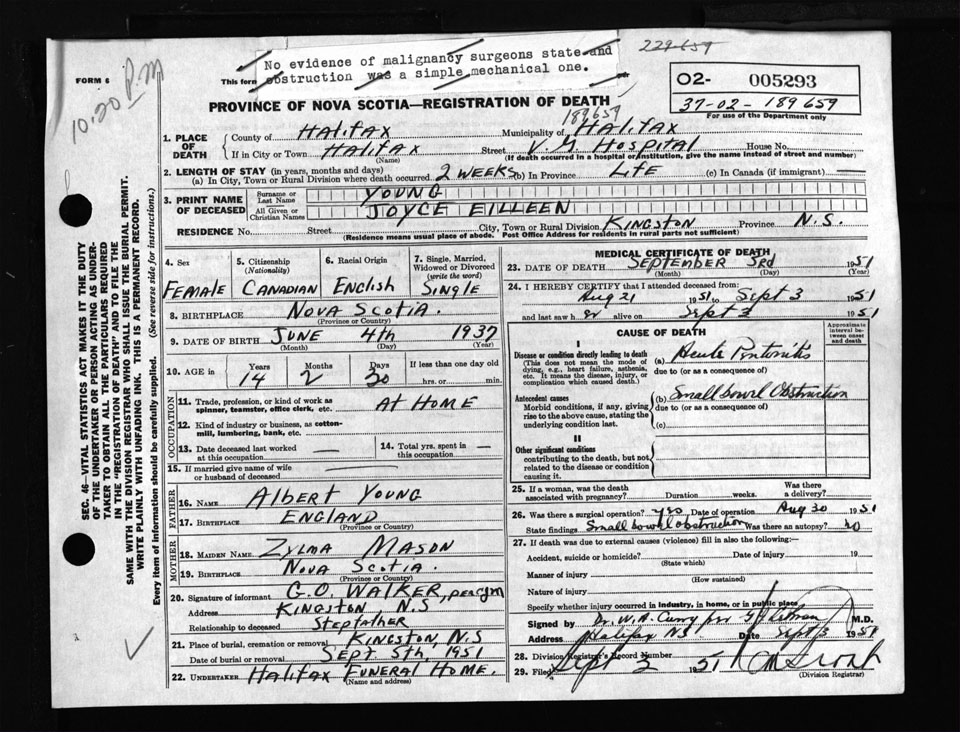 No evidence of malignancy surgeons state and
obstruction was a simple mechanical one.
229659
FORM 6
This form
10.20 P.M
O2- 005293
37-02-189659
For use of the Department only
PROVINCE OF NOVA SCOTIA—REGISTRATION OF DEATH
189659
1. PLACE OF DEATH
County of Halifax Municipality of Halifax
If in City or Town Halifax Street V.G. Hospital House No.
(Name) (If death occurred in a hospital or institution, give the name instead of street and number)
2. LENGTH OF STAY (in years, months and days)
(a) In City, Town or Rural Division where death occurred 2 weeks (b) In Province Life (c) In Canada (if immigrant) —
3. PRINT NAME OF DECEASED
Surname or Last Name YOUNG
All Given or Christian Names JOYCE EILLEEN
RESIDENCE No. Street City, Town or Rural Division KINGSTON Province N.S.
(Residence means usual place of abode. Post Office Address for residents in rural parts not sufficient)
4. Sex FEMALE
5. Citizenship (Nationality) CANADIAN
6. Racial Origin ENGLISH
7. Single, Married, Widowed or Divorced (write the word) SINGLE
8. BIRTHPLACE NOVA SCOTIA
(Province or Country)
9. DATE OF BIRTH JUNE 4th 1937
(Month) (Day) (Year)
10. AGE in Years 14 Months 2 Days 30 If less than one day old hrs. or min.
OCCUPATION
11. Trade, profession, or kind of work as spinner, teamster, office clerk, etc. AT HOME
12. Kind of industry or business, as cotton-mill, lumbering, bank, etc.
13. Date deceased last worked at this occupation —
14. Total yrs. spent in this occupation —
15. If married give name of wife or husband of deceased
FATHER
16. NAME Albert Young
17. BIRTHPLACE ENGLAND
(Province or Country)
MOTHER
18. MAIDEN NAME Zylma Mason
19. BIRTHPLACE Nova Scotia.
(Province or Country)
20. Signature of informant G.O. WALKER,
Address KINGSTON, N.S
Relationship to deceased Stepfather
21. Place of burial, cremation or removal KINGSTON, N.S
Date of burial or removal SEPT 5th, 1951
22. UNDERTAKER HALIFAX FUNERAL HOME.
(Name and address)
MEDICAL CERTIFICATE OF DEATH
23. DATE OF DEATH SEPTEMBER 3rd 1951
(Month) (Day) (Year)
24. I HEREBY CERTIFY that I attended deceased from:
Aug 21 1951 to Sept 3 1951
and last saw her alive on Sept 3 1951
CAUSE OF DEATH
Approximate interval between onset and death
I
Disease or condition directly leading to death
(This does not mean the mode of dying, e.g., heart failure, asthenia, etc. It means the disease, injury, or complication which caused death.)
(a) Acute Peritonitis
due to (or as a consequence of)
Antecedent causes
Morbid conditions, if any, giving rise to the above cause, stating the underlying condition last.
(b) Small bowel Obstruction
due to (or as a consequence of)
(c)
II
Other significant conditions
contributing to the death, but not related to the disease or condition causing it.
25. If a woman, was the death associated with pregnancy? Duration weeks. Was there a delivery?
26. Was there a surgical operation? yes Date of operation Aug 30 1951
State findings Small bowel obstruction Was there an autopsy? no
27. If death was due to external causes (violence) fill in also the following:—
Accident, suicide or homicide? Date of injury 19
(State which)
Manner of injury
(How sustained)
Nature of injury
Specify whether injury occurred in industry, in home, or in public place
Signed by Dr. W. A. Curry per M.D.
Address Halifax NS Date Sept 3 1951
28. Division Registrar's Record Number
29. Filed Sept 1951
(Division Registrar)
SEC. 46—VITAL STATISTICS ACT MAKES IT THE DUTY
OF THE UNDERTAKER OR PERSON ACTING AS UNDER-
TAKER TO OBTAIN ALL THE PARTICULARS REQUIRED
IN THE "REGISTRATION OF DEATH" AND TO FILE THE
SAME WITH THE DIVISION REGISTRAR WHO SHALL ISSUE THE BURIAL PERMIT.
WRITE PLAINLY WITH UNFADING INK. THIS IS A PERMANENT RECORD.
Every item of information should be carefully supplied. (See reverse side for instructions.)